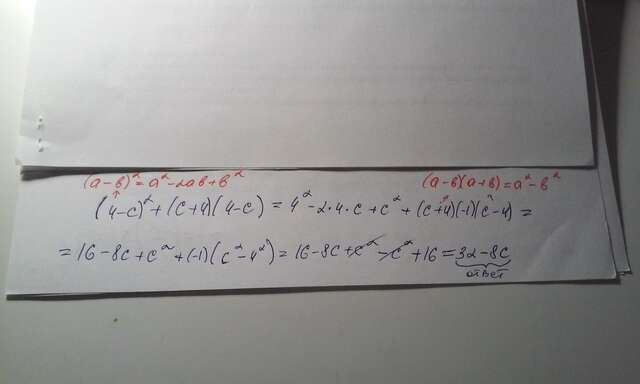 (a-b)²=a²-2ab+b² (a-b)(a+b)=a²-b²
(4-c)²+(c+4)(4-c)=4²-2·4·c+c²+(c+4)(-1)(c-4)=
=16-8c+c²+(-1)(c²-4²)=16-8c+c²-c²+16=32-8c
ответ